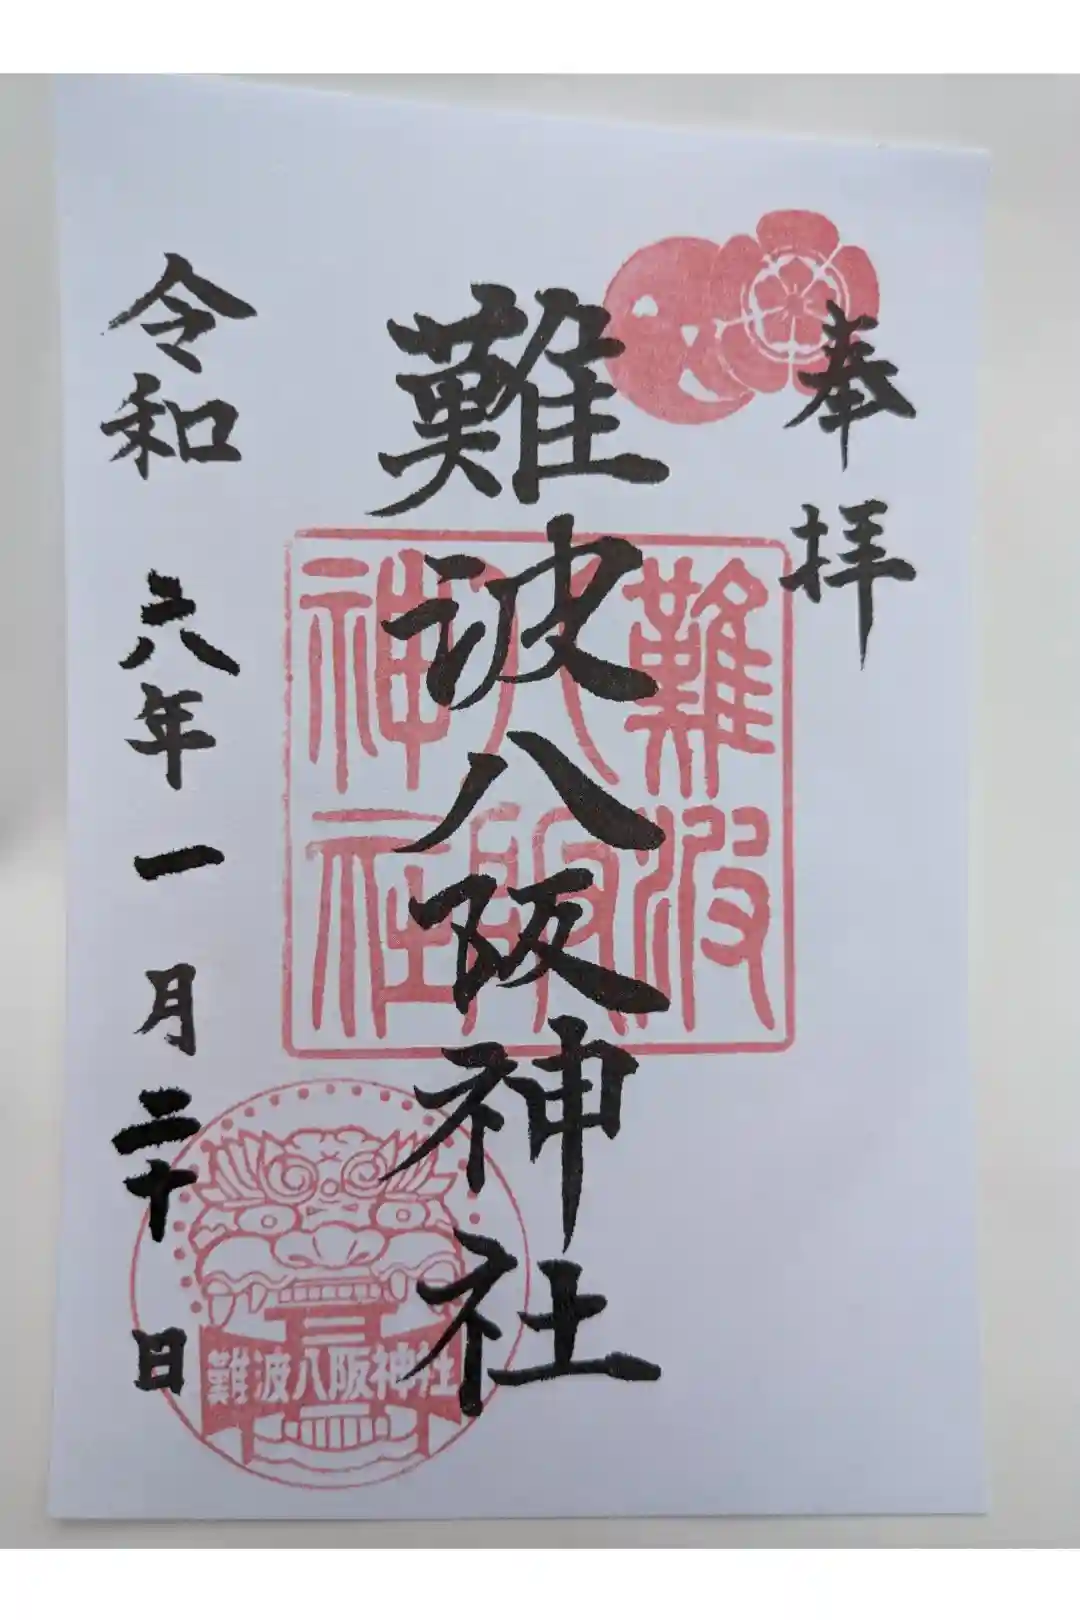 奉拝
難波八阪神社
令和 六年 一月 二十日
難波
八阪
神社
難波八阪神社